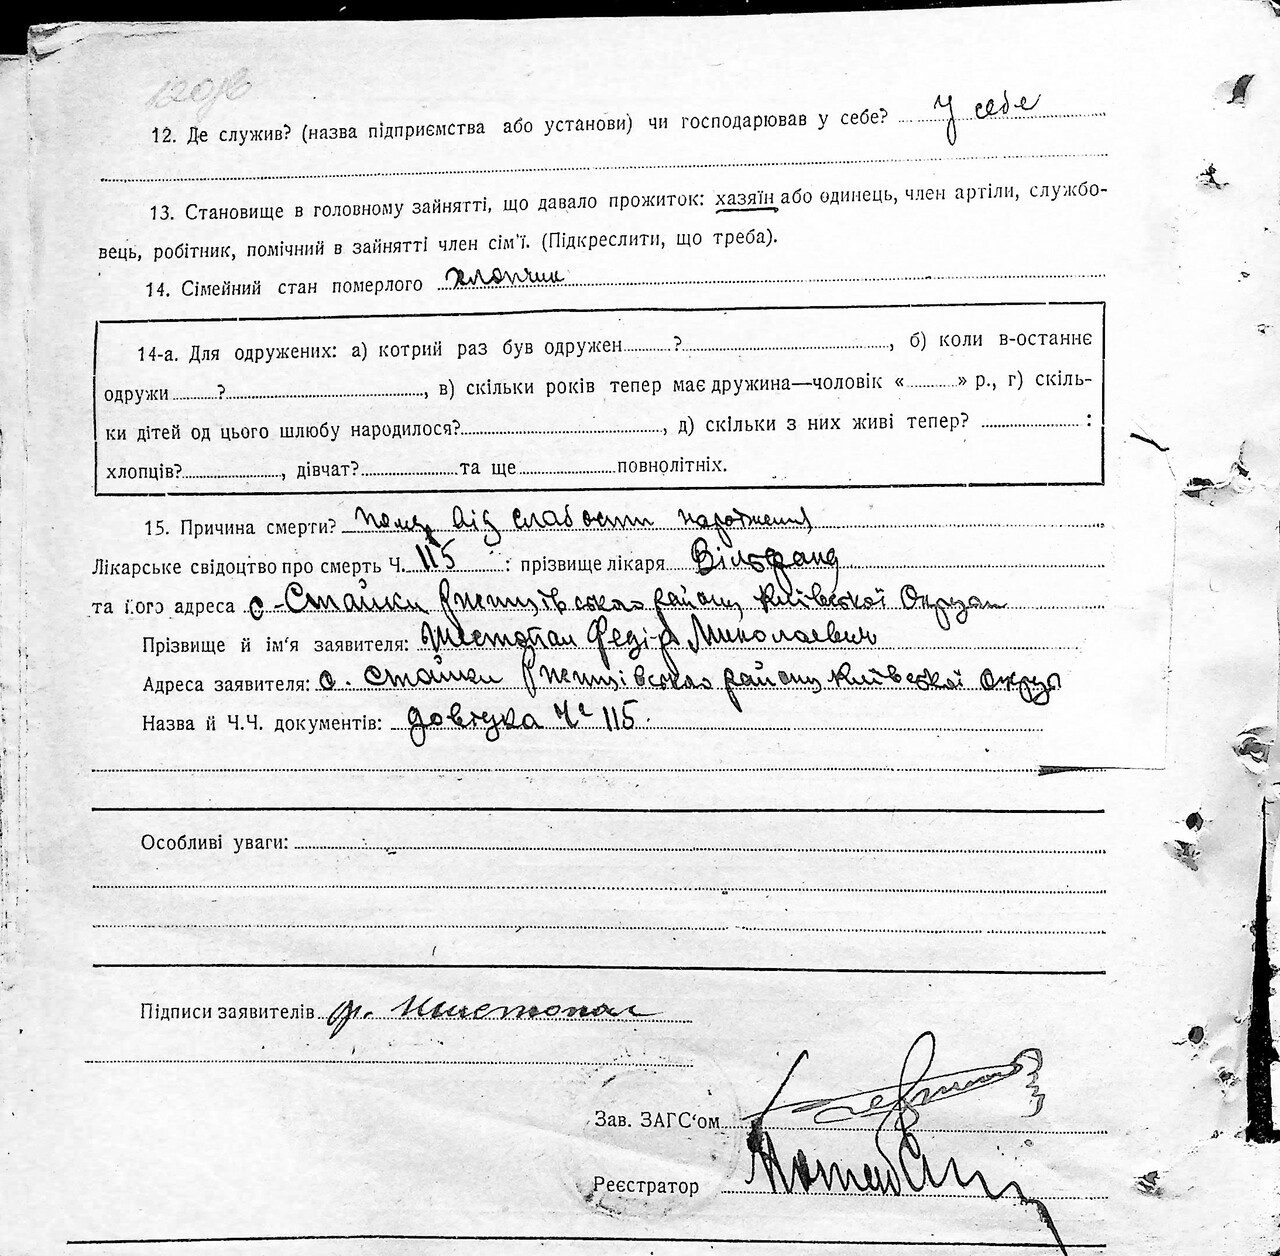 12. Де служив? (назва підприємства або установи) чи господарював у себе? У себе
13. Становище в головному зайнятті, що давало прожиток: хазяїн або одинець, член артіли, службо-
вець, робітник, помічний в зайнятті член сім'ї. (Підкреслити, що треба).
14. Сімейний стан померлого хлопчик
14-а. Для одружених: а) котрий раз був одружен ? , б) коли в-останнє
одружи ? , в) скільки років тепер має дружина—чоловік « » р., г) скіль-
ки дітей од цього шлюбу народилося? , д) скільки з них живі тепер? :
хлопців? , дівчат? та ще повнолітніх.
15. Причина смерти? від слабости народження
Лікарське свідоцтво про смерть Ч. 115 : прізвище лікаря
та його адреса с. Стайки Ржищівського району Київської Округи
Прізвище й ім'я заявителя: Шистопал Федір Миколаевич
Адреса заявителя: с. Стайки Ржищівського району Київської Округи
Назва й Ч.Ч. документів: довідка № 115.
Особливі уваги:
Підписи заявителів Ф. Шистопал
Зав. ЗАГС'ом
Реєстратор